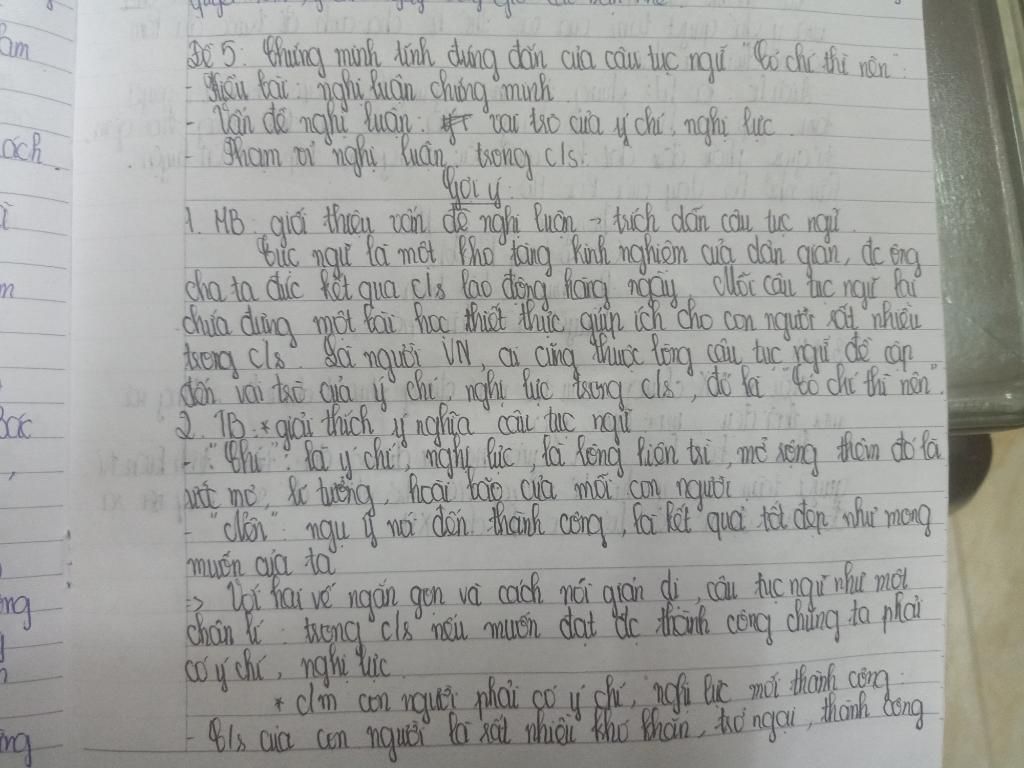 Đề 5: Chứng minh tính đúng đắn của câu tục ngữ "Có chí thì nên".
- Kiểu bài: nghị luận chứng minh
- Vấn đề nghị luận: vai trò của ý chí, nghị lực
- Phạm vi nghị luận: trong c/s.
Gợi ý:
1. MB: giới thiệu vấn đề nghị luận → trích dẫn câu tục ngữ
Tục ngữ là một kho tàng kinh nghiệm của dân gian, đc ông
cha ta đúc kết qua c/s lao động hàng ngày. Mỗi câu tục ngữ lại
chứa đựng một bài học thiết thực, giúp ích cho con người rất nhiều
trong c/s. Là người VN, ai cũng thuộc lòng câu tục ngữ đề cập
đến vai trò của ý chí, nghị lực trong c/s, đó là "Có chí thì nên"
2. TB: * giải thích ý nghĩa câu tục ngữ
- "Chí": là ý chí, nghị lực, là lòng kiên trì, mở rộng thêm đó là
ước mơ, lí tưởng, hoài bão của mỗi con người
- "Nên": ngụ ý nói đến thành công, là kết quả tốt đẹp như mong
muốn của ta
=> Với hai vế ngắn gọn và cách nói giản dị, câu tục ngữ như một
chân lí: trong c/s nếu muốn đạt đc thành công chúng ta phải
có ý chí, nghị lực
* c/m con người phải có ý chí, nghị lực mới thành công
- C/s của con người là rất nhiều khó khăn, trở ngại, thành công
ách
ì
m
Bác
,
ng
ng